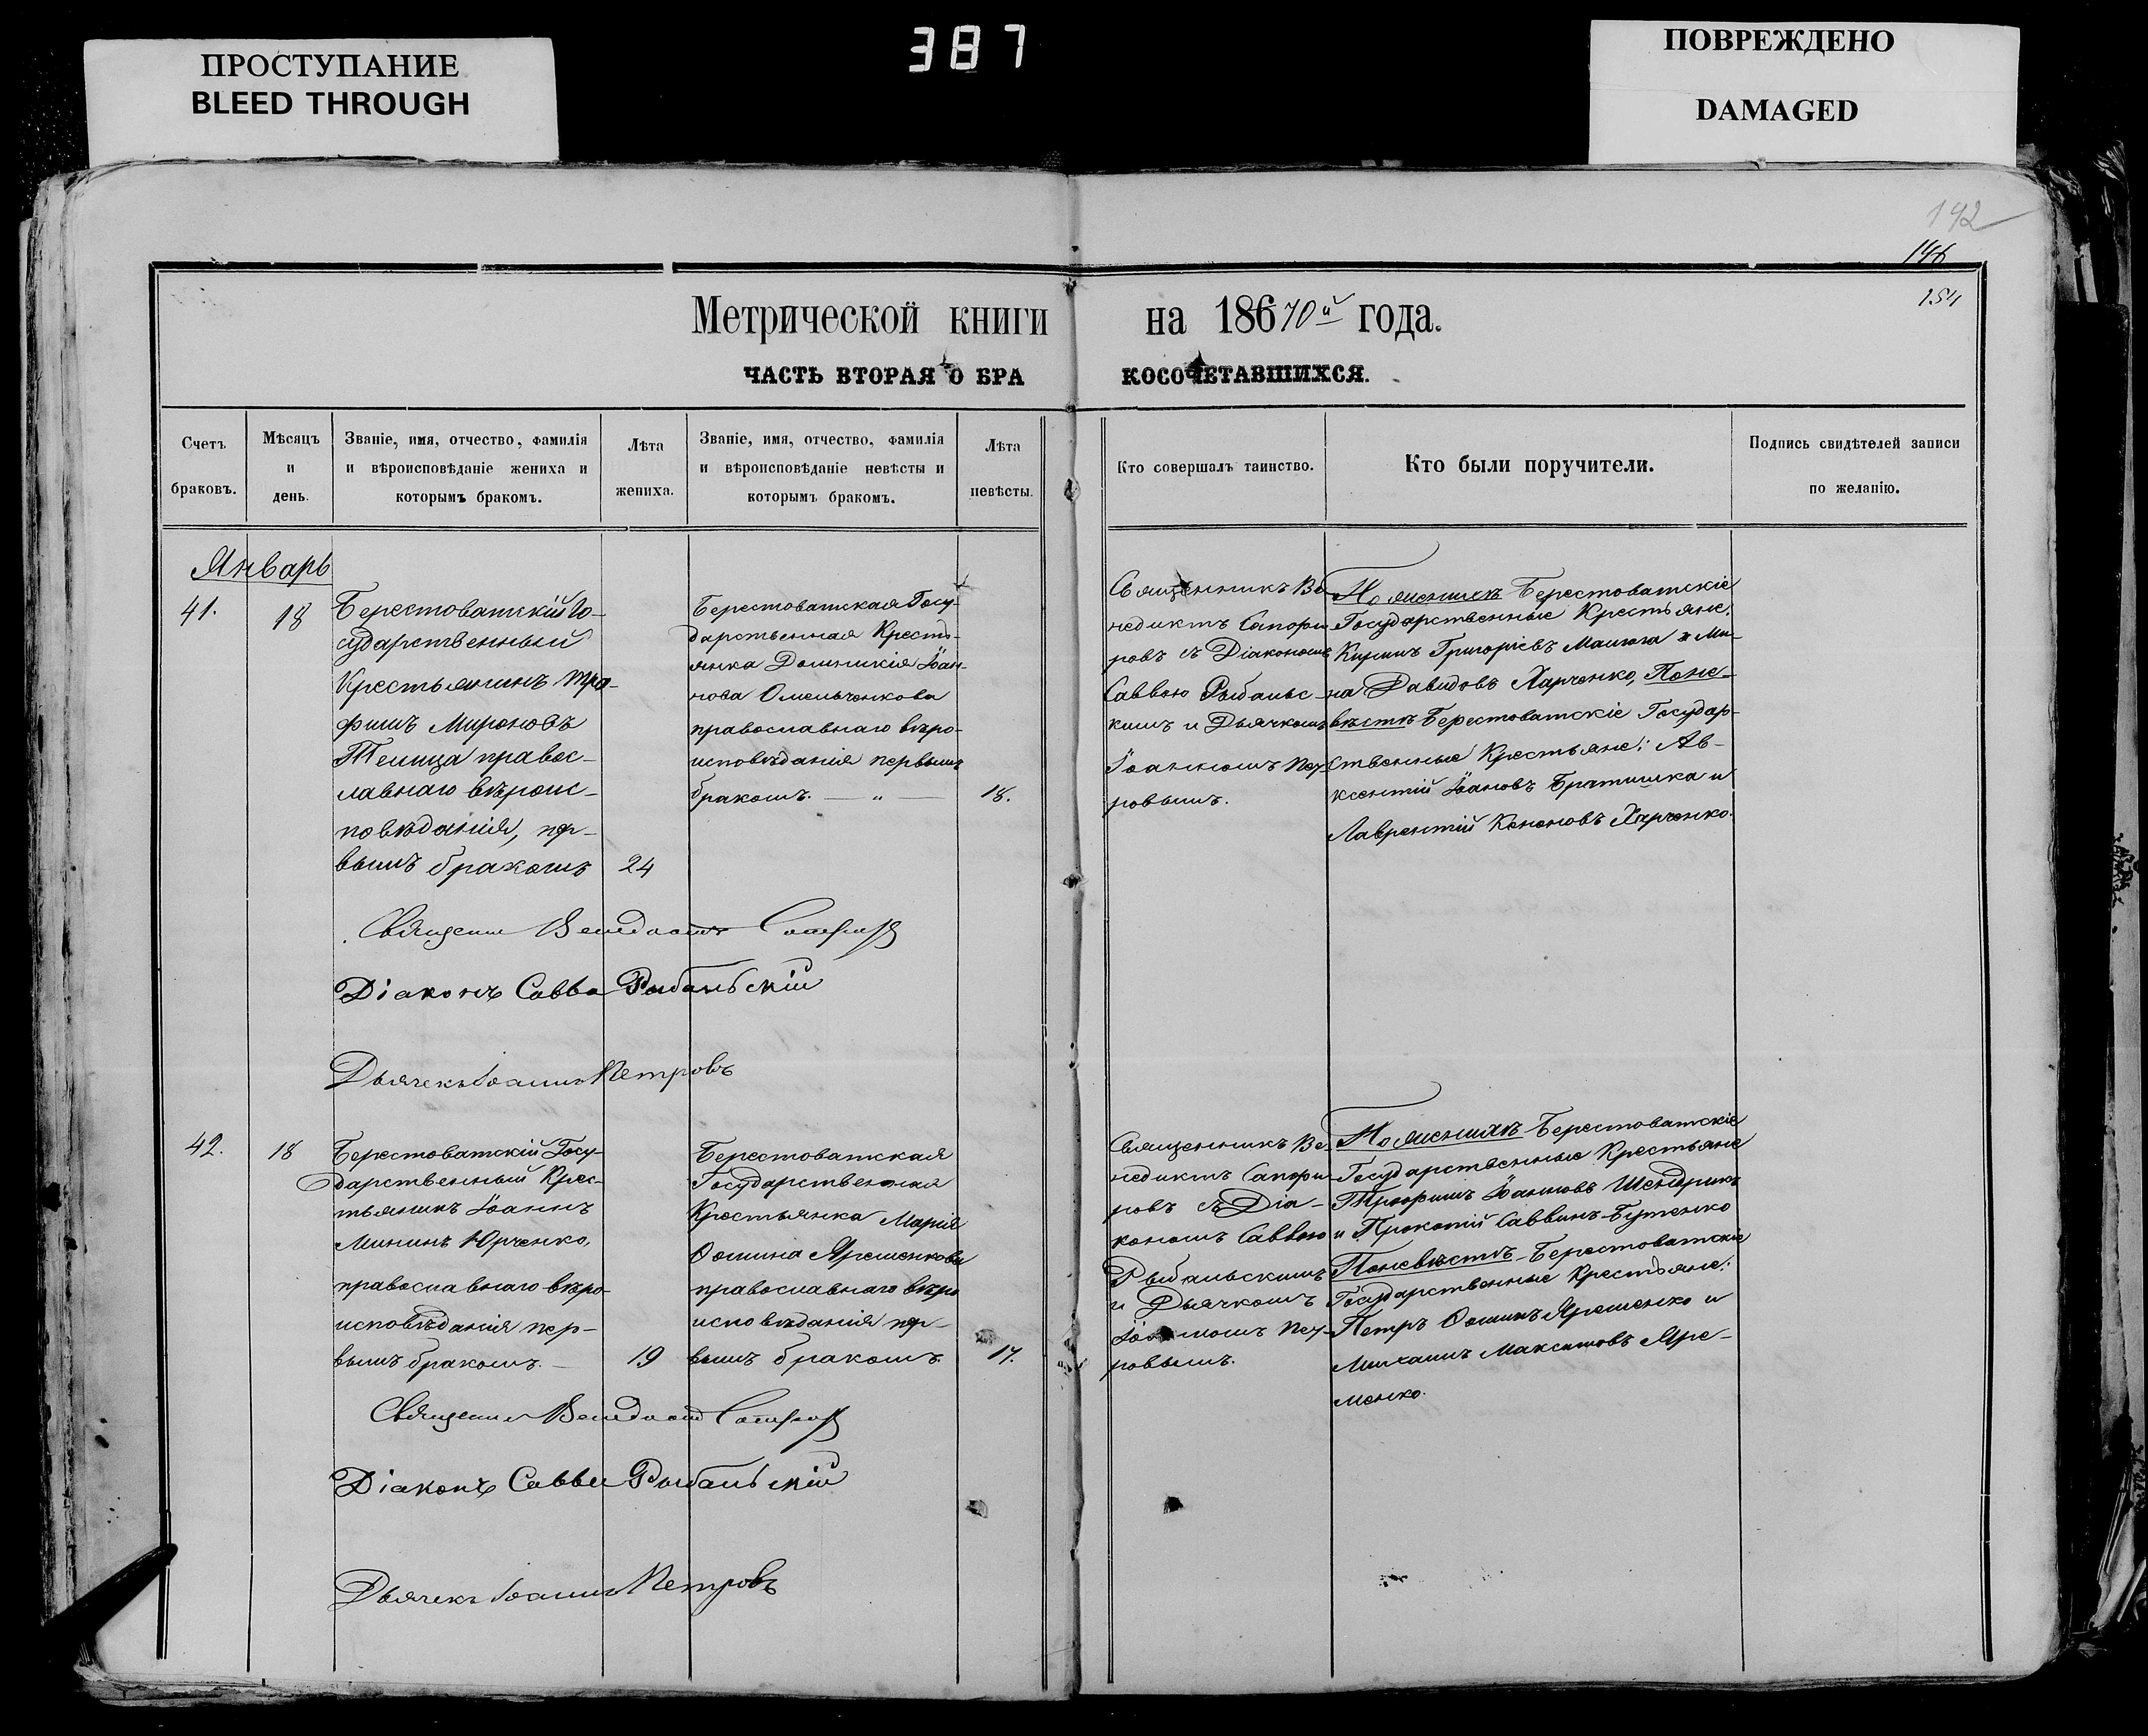 ПРОСТУПАНИЕ
BLEED THROUGH
387
ПОВРЕЖДЕНО
DAMAGED
192
146
154
Метрической книги на 18670й года.
ЧАСТЬ ВТОРАЯ О БРАКОСОЧЕТАВШИХСЯ.
Счетъ
браковъ.
Мѣсяцъ
и
день.
Званіе, имя, отчество, фамилія
и вѣроисповѣданіе жениха и
которымъ бракомъ.
Лѣта
жениха.
Званіе, имя, отчество, фамилія
и вѣроисповѣданіе невѣсты и
которымъ бракомъ.
Лѣта
невѣсты.
Кто совершалъ таинство.
Кто были поручители.
Подпись свидѣтелей записи
по желанію.
Январь
41.
18
Берестоватскій Го-
сударственный
Крестьянинъ Тро-
фимъ Мироновъ
Телица правос-
лавнаго вѣроис-
повѣданія, пер-
вымъ бракомъ
24
Берестоватская Госу-
дарственная Кресть-
янка Домникія Іоан-
нова Омельченкова
православнаго вѣро-
исповѣданія первымъ
бракомъ. — „ —
18.
Священникъ Ве-
недиктъ Сапфи-
ровъ съ Діакономъ
Саввою Рыбальс-
кимъ и Дьячкомъ
Іоанномъ Пет-
ровымъ.
По женихѣ Берестоватскіе
Государственные Крестьяне:
Кирилъ Григоріевъ и Ми-
на Давидовъ Харченко, По не-
вѣстѣ Берестоватскіе Государ-
ственные Крестьяне: Ав-
ксентій Іоановъ Братишка и
Лаврентій Кононовъ Харченко.
Священникъ Венедиктъ Сапфировъ
Діаконъ Савва Рыбальскій
Дьячекъ Іоаннъ Петровъ
42.
18
Берестоватскій Госу-
дарственный Крес-
тьянинъ Іоаннъ
Мининъ Юрченко,
православнаго вѣро-
исповѣданія пер-
вымъ бракомъ. —
19
Берестоватская
Государственная
Крестьянка Марія
Ѳомина Яременкова
православнаго вѣро
исповѣданія пер-
вымъ бракомъ.
17.
Священникъ Ве-
недиктъ Сапфи-
ровъ съ Діа-
кономъ Саввою
Рыбальскимъ
и Дьячкомъ
Іоанномъ Пет-
ровымъ.
По женихѣ Берестоватскіе
Государственные Крестьяне
Трофимъ Іоанновъ Шендрикъ
и Прокопій Саввинъ Бутенко
По невѣстѣ Берестоватскіе
Государственные Крестьяне:
Петръ Ѳоминъ Яременко и
Михаилъ Максимовъ Яре-
менко.
Священникъ Венедиктъ Сапфировъ
Діаконъ Савва Рыбальскій
Дьячекъ Іоаннъ Петровъ